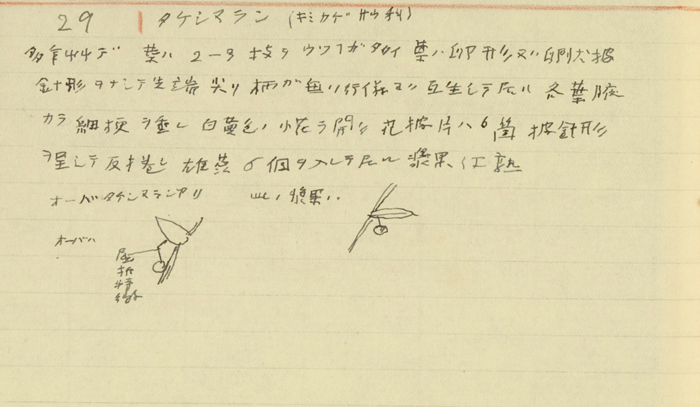 29 タケシマラン (キミカゲサウ科)
多年草デ 莖ハ 2-3 枝ヲ 葉ハ卵形又ハ卵状披
針形ヲナシテ先端尖リ柄ガ無ク 互生シテ居ル 各葉腋
カラ細梗ヲ垂レ 白黄色ノ小花ヲ開ク 花被片ハ6箇 披針形
ヲ呈シテ反捲シ 雄蕊 6個ヲ入レテ居ル 漿果 紅熟
オーバタケシマランアリ 此ノ漿果ハ
オーバハ
屈
折
特